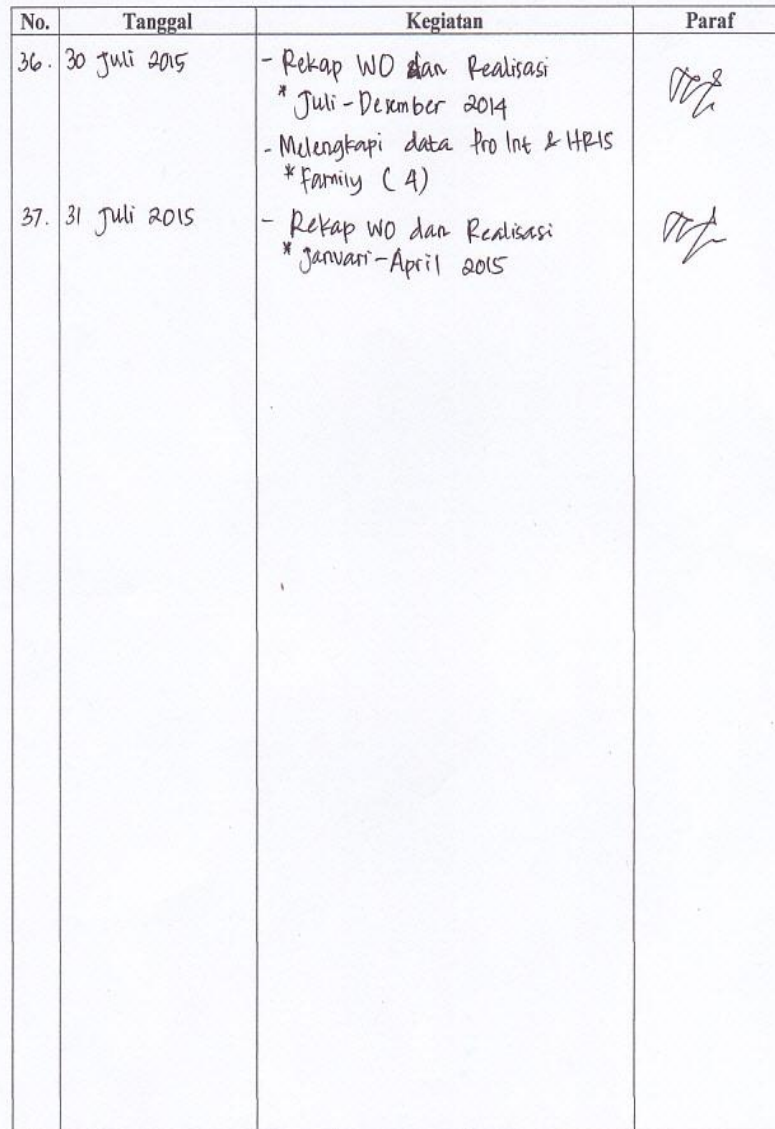 No. Tanggal Kegiatan Paraf
36. 30 Juli 2015 - Rekap WO dan Realisasi
* Juli - Desember 2014
- Melengkapi data Pro Int & HRIS
* Family (4)
37. 31 Juli 2015 - Rekap WO dan Realisasi
* Januari - April 2015